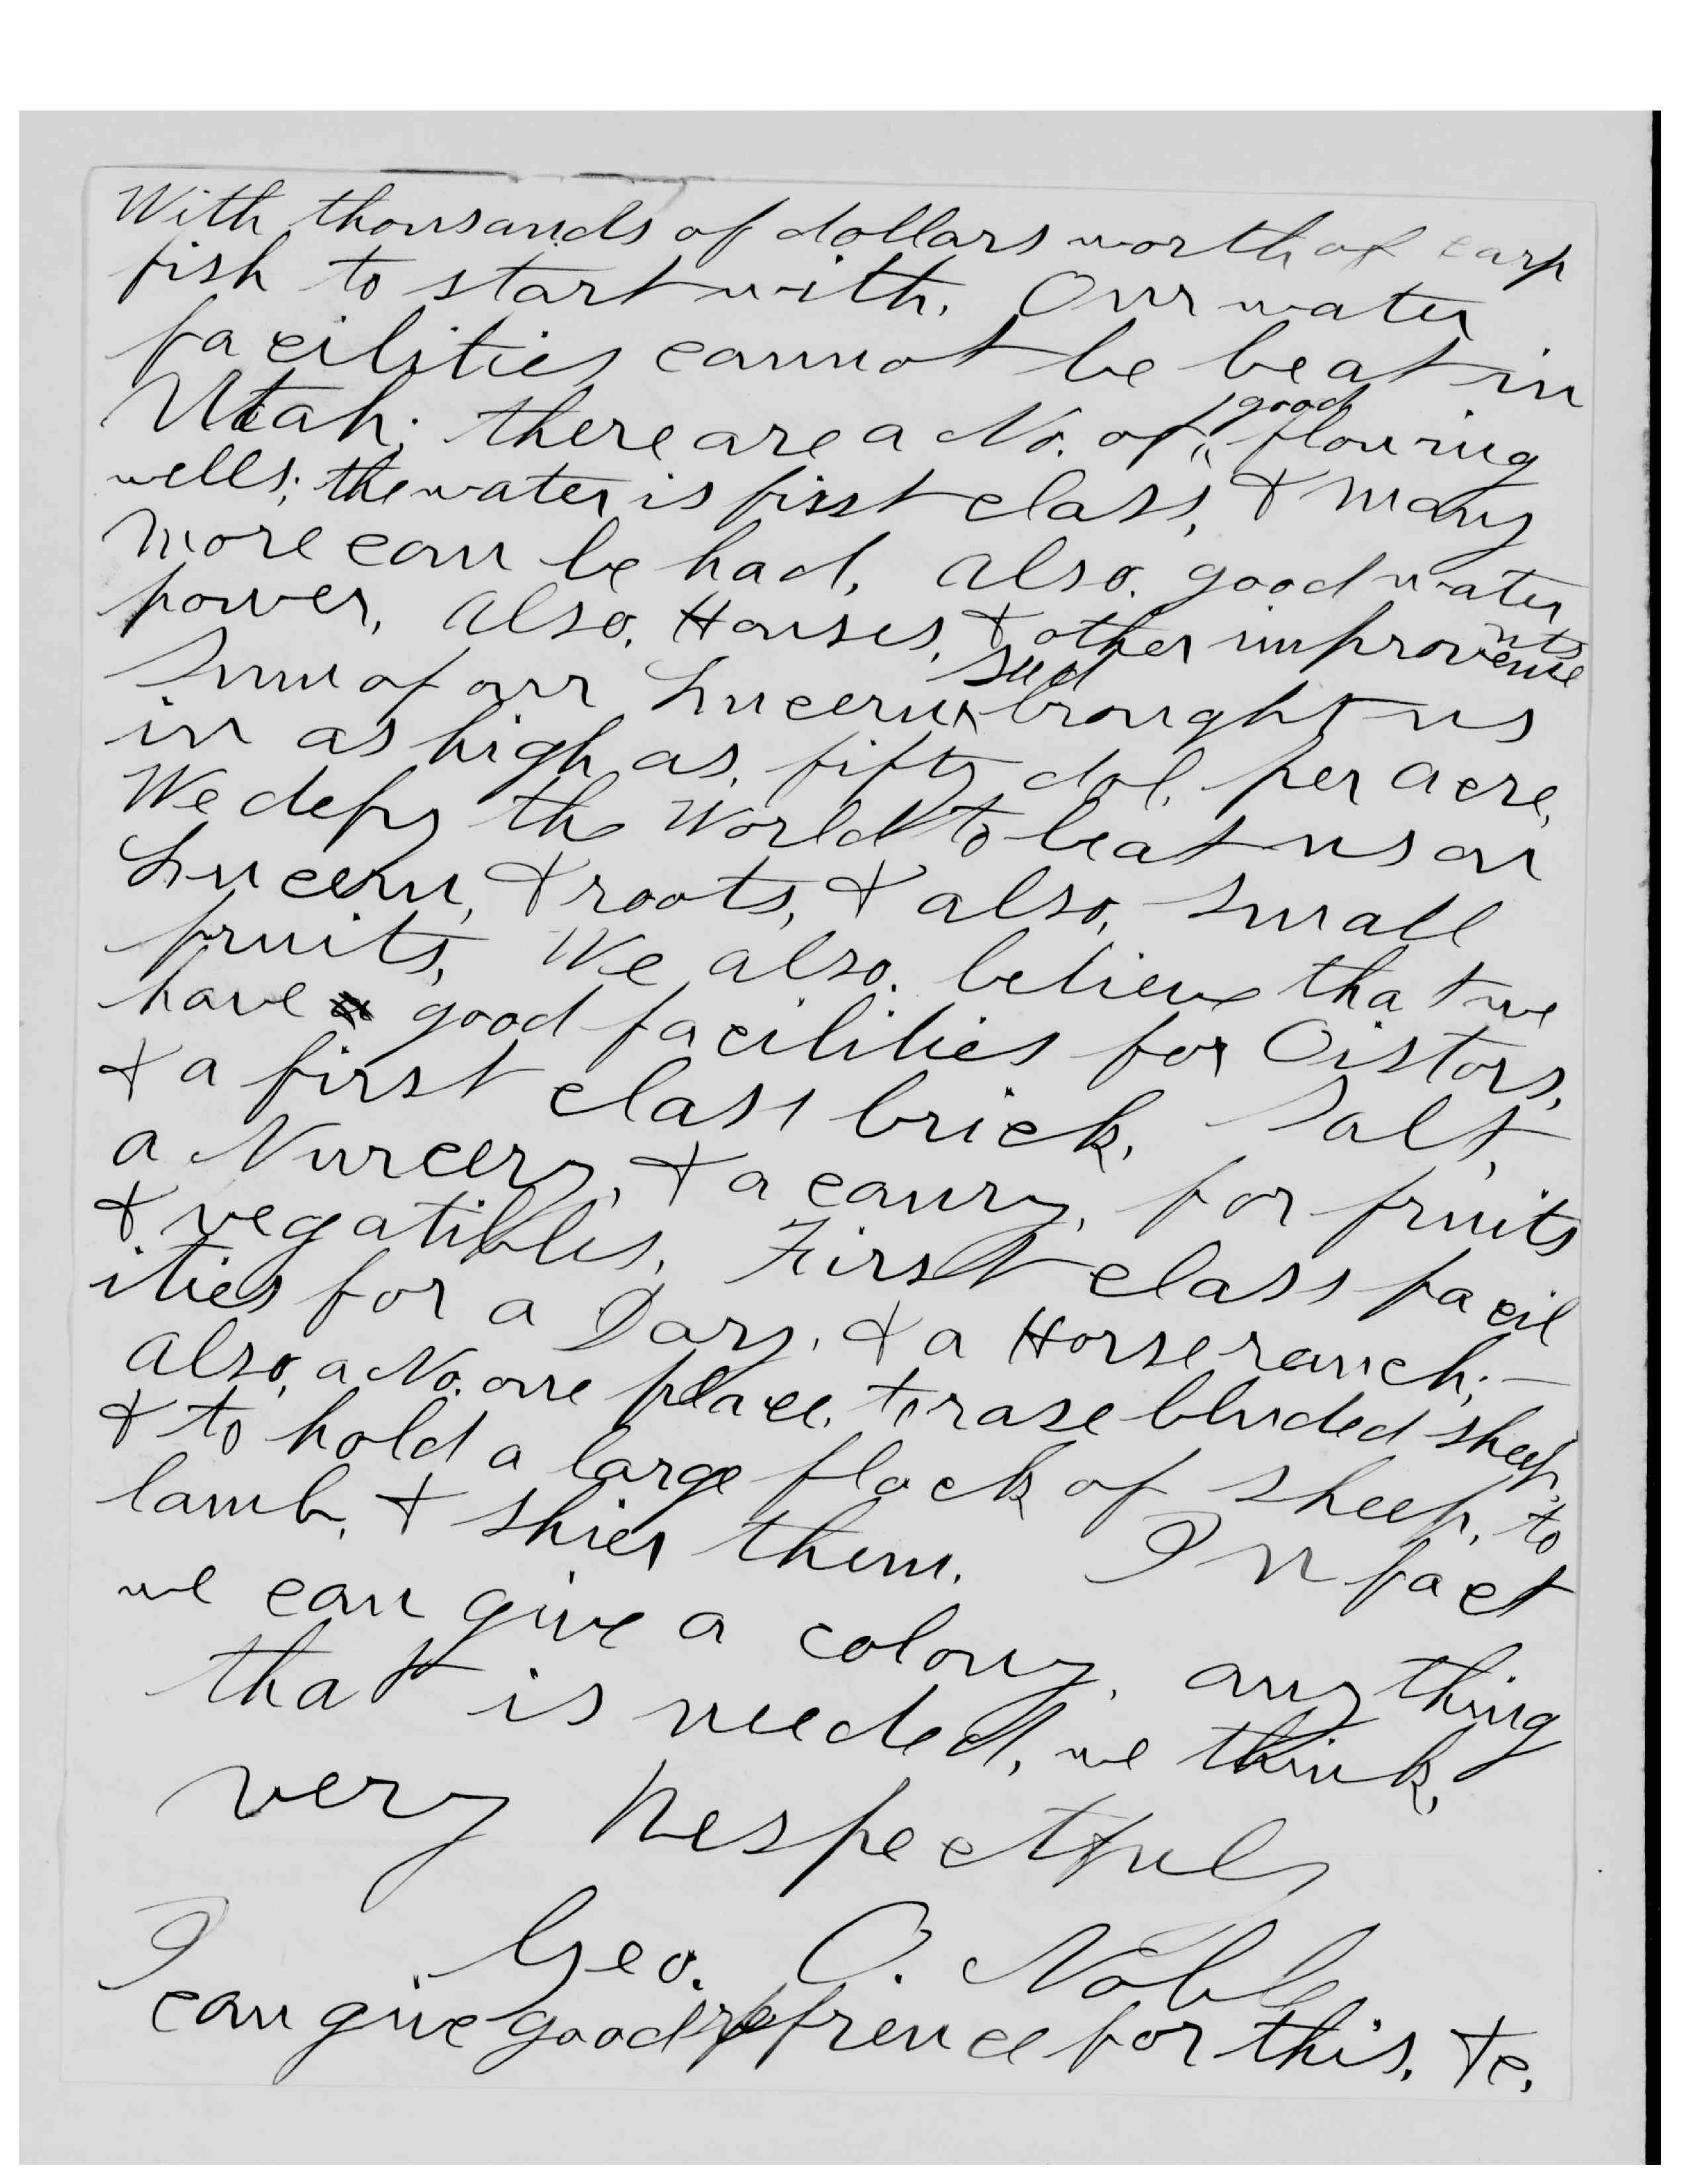 With thousands of dollars worth of carp
fish to start with. Our water
facilities cannot be beat in
Utah; there are a No. of good flowing
wells; the water is first class, & many
more can be had, also. good water
power, also, Houses, & other improvements
Sum of our Lucern seed brought us
in as high as, fifty dol, per acre,
We defy the World to beat us on
Lucern, & roots, & also, small
fruits, We also. believe that we
have good facilities for Oistors,
& a first class brick, Salt,
a Nurcery, & a canry, for fruits
& vegatibles, First class facil
ities for a Dary, & a Horse ranch; —
also, a No. one place, to rase bluded sheep,
& to hold a large flock of sheep, to
lamb, & shier them. In fact
we can give a colony, any thing
that is needed, we think,
very Respectfuly
Geo. O. Noble
I
can give good refrence for this, &c,